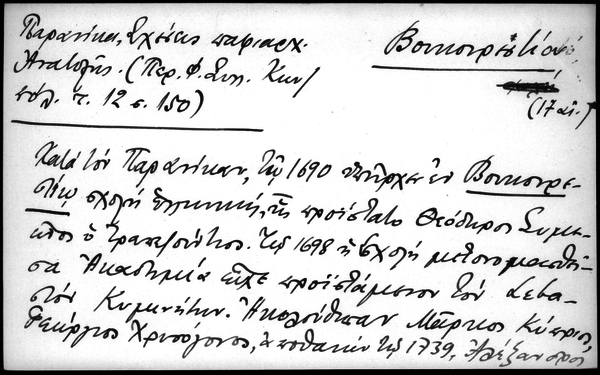 Παρανίκα, Σχέσεις πατριαρχ.
Βουκουρέστι
Ἀνατολῆς. (Περ. Φ. Συλ. Κων/
πόλ. τ. 12 σ. 150)
(17 αἰ.)
Κατὰ τὸν Παρανίκαν, τῷ 1690 ὑπῆρχεν ἐν Βουκουρε-
στίῳ σχολὴ ἑλληνική, ἧς προΐστατο Θεόδωρος Συμε-
ὁ Τραπεζούντιος. Τῷ 1698 ἡ σχολὴ μετονομασθεῖ-
σα Ἀκαδημία εἶχε προϊστάμενον τὸν Σεβα-
στὸν Κυμινήτην. Ἠκολούθησαν Μάρκος Κύπριος,
Γεώργιος Χρυσόγονος, ἀποθανὼν τῷ 1739, Ἀλέξανδρος